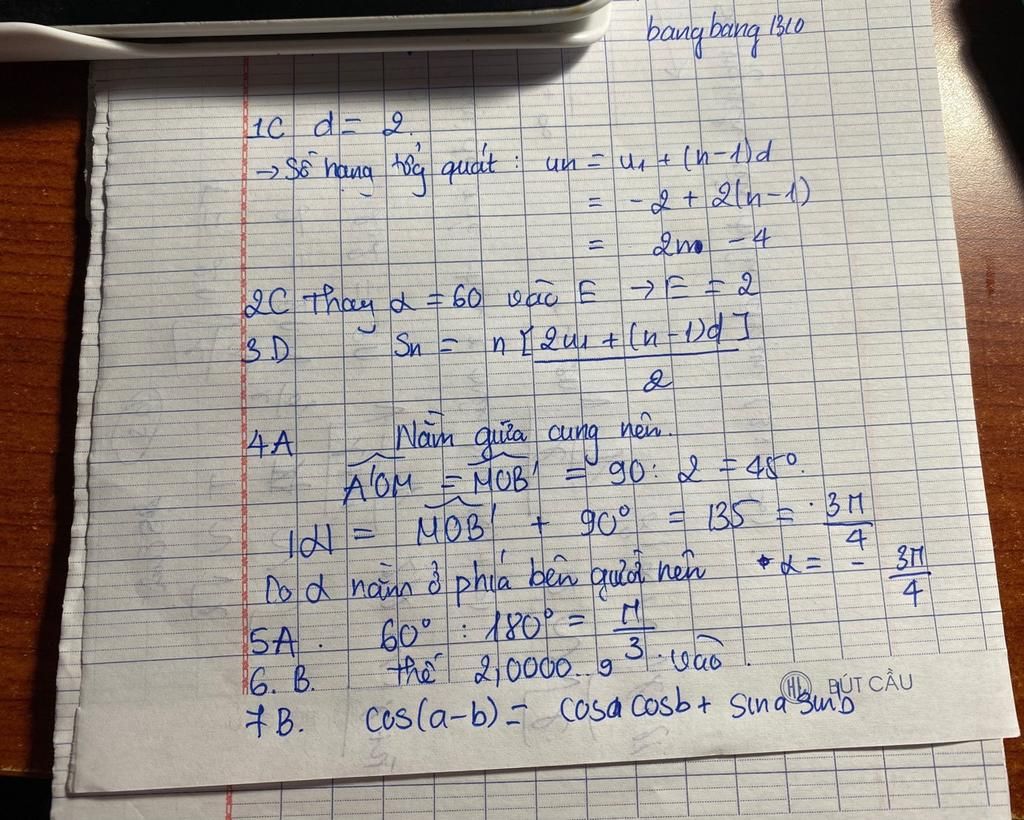 bangbang 1310
1C d = 2.
→ Số hạng tổg quát : un = u1 + (n-1)d
= -2 + 2(n-1)
= 2n - 4
2C thay α = 60 vào E → E = 2
3D Sn = n [2u1 + (n-1)d] / 2
4A Nằm giữa cung nên.
A'OM = MOB' = 90 : 2 = 45°.
|α| = MOB' + 90° = 135 = 3π/4
Do α nằm ở phiá bên gưới nên α = - 3π/4
5A. 60° : 180° = π/3
6. B. thế 2,0000..9 vào.
7B. cos(a-b) = cosa cosb + sina sinb
Hb BÚT CẦU